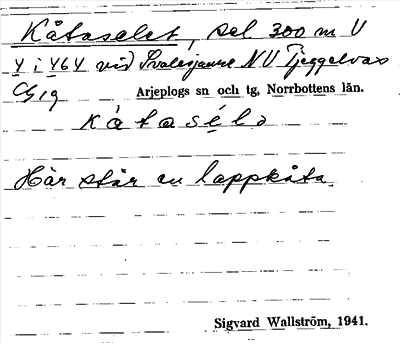 Kåtaselet, sel 300 m V
Y i 464 vid Svalesjaure NV Tjeggelvas
Arjeplogs sn och tg, Norrbottens län.
kåtasélə
Här står en lappkåta
Sigvard Wallström, 1941.